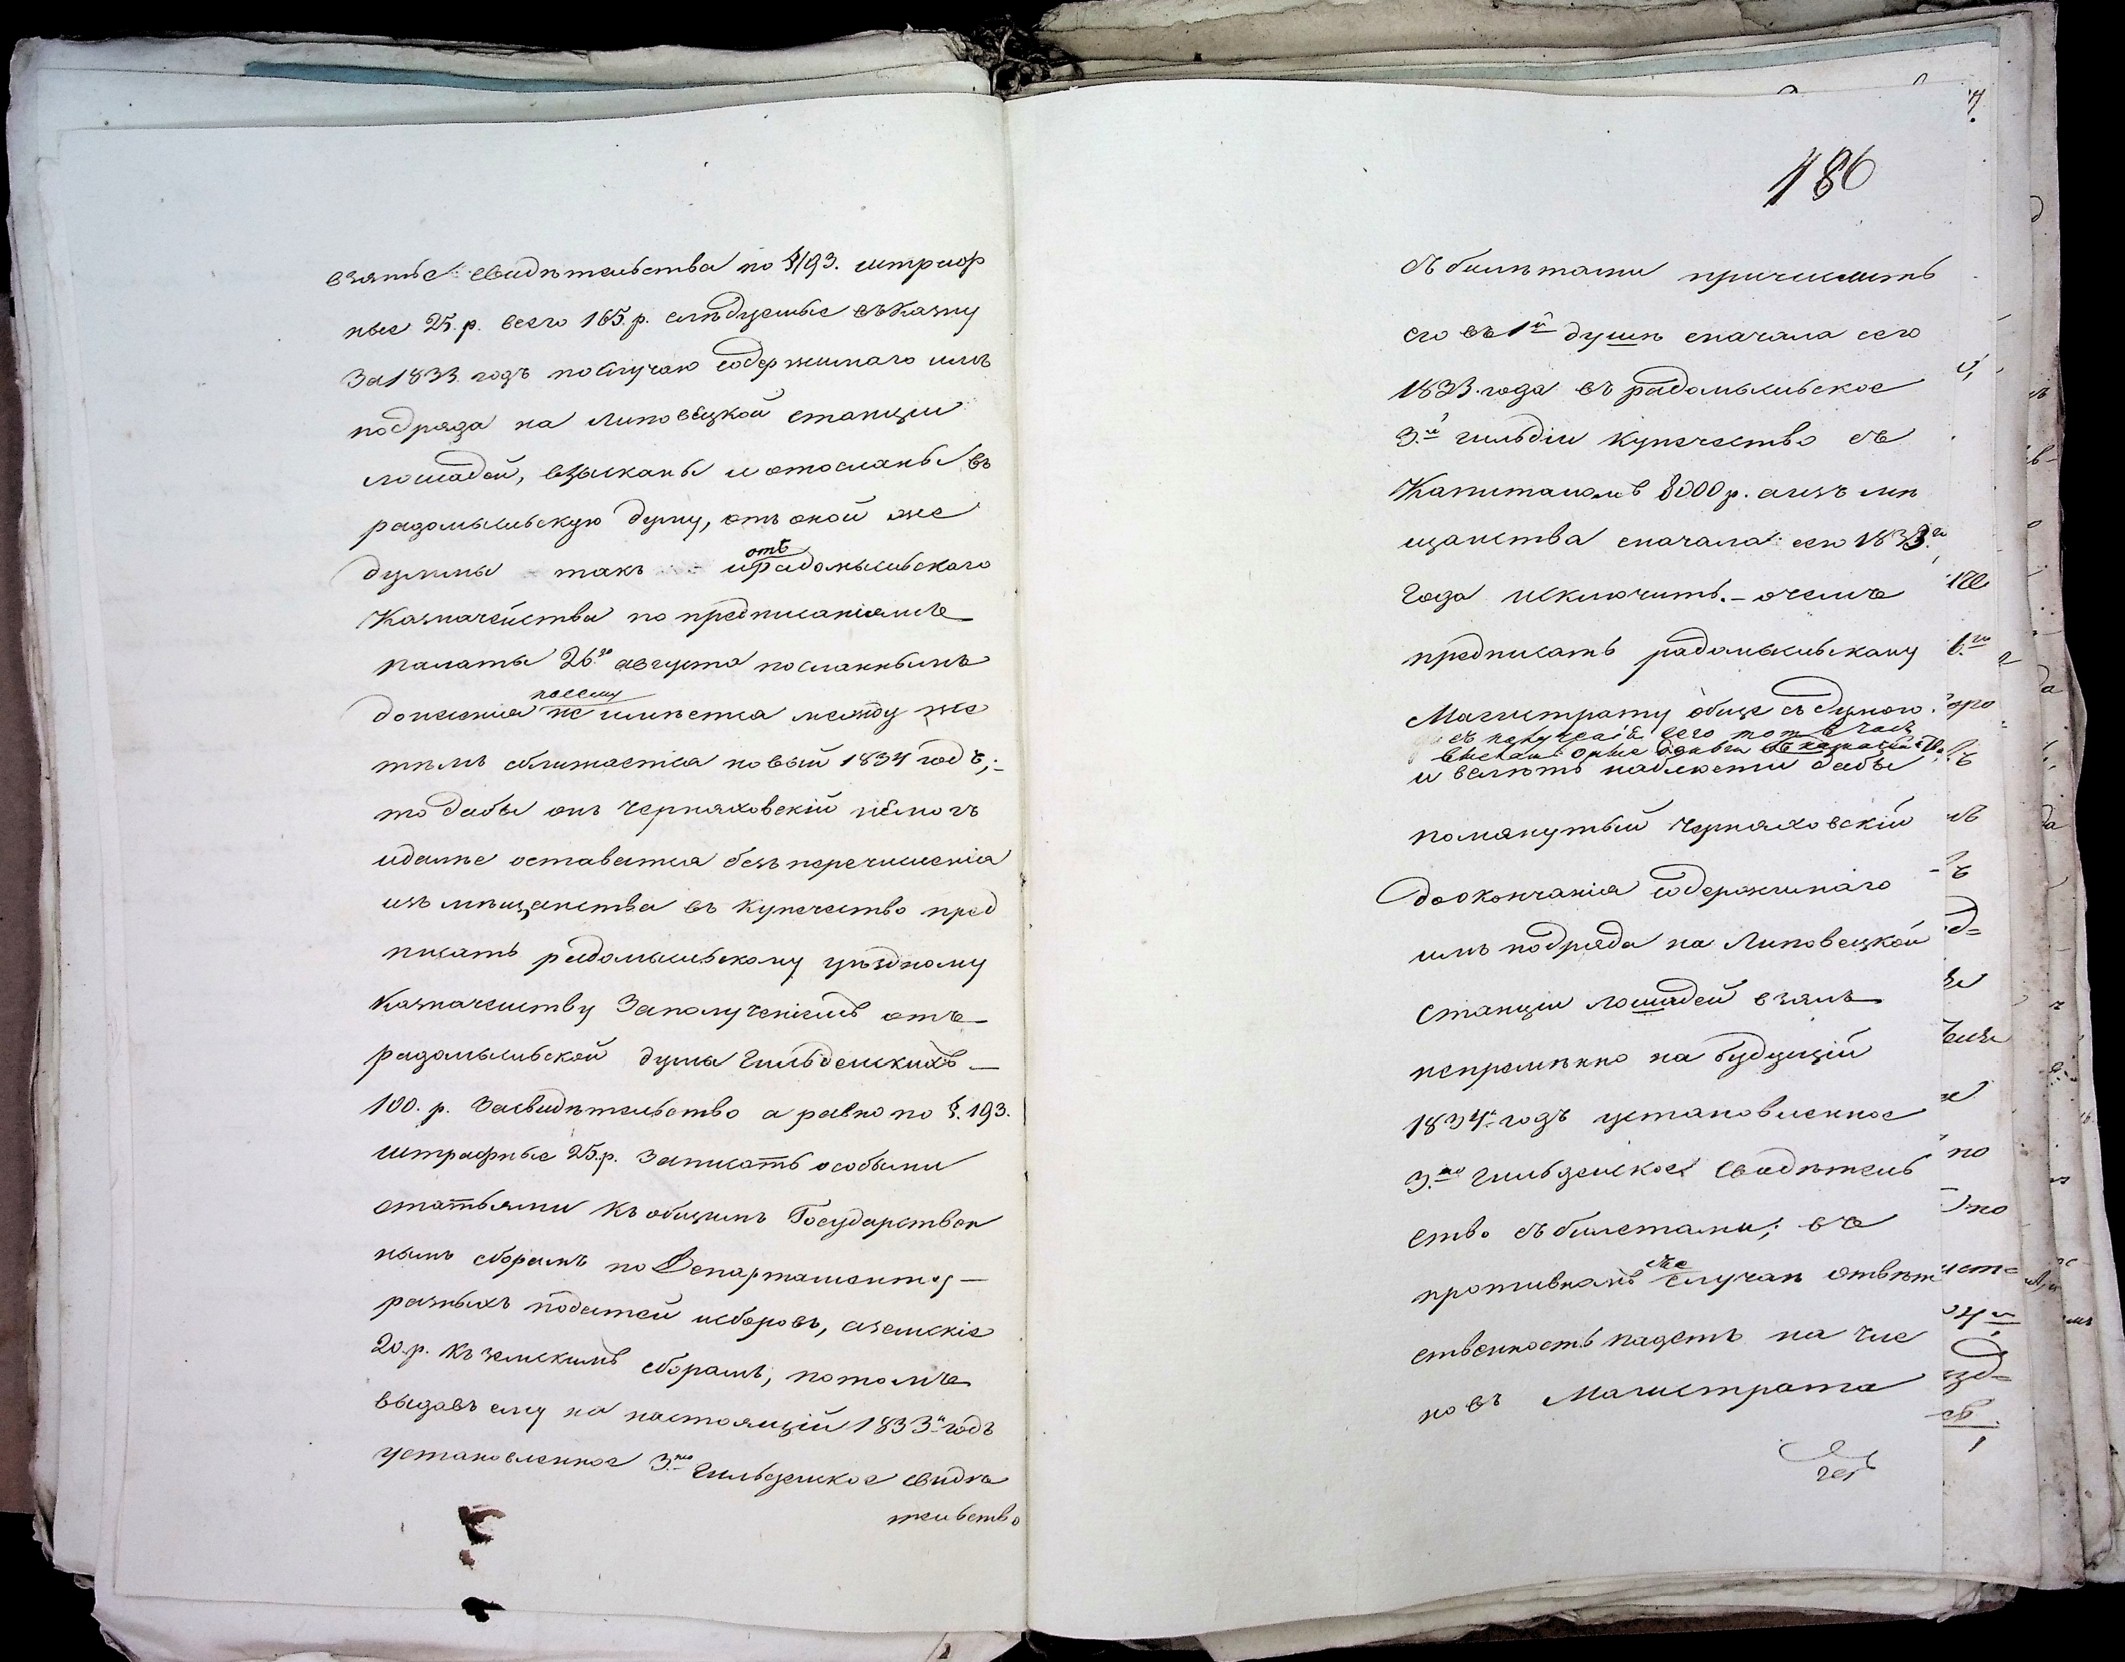 взятые свидѣтельства по §193. штраф
ные 25. р. всего 165. р. слѣдуемые въ Казну
За 1833. годъ по случаю содержимаго имъ
подряда на Липовецкой станціи
лошадей, взысканы и отосланы въ
радомысльскую думу, отъ оной же
думы такъ и отъ радомысльскаго
Казначейства по предписаніямъ
палаты 26го августа посланнымъ
донесенія посему не имѣется между же
тѣмъ сближается новый 1834 годъ,
то дабы онъ Черняховскій немогъ
идалѣе оставатся безъ перечисленія
изъ мѣщанства въ купечество пред
писать радомысльскому уѣздному
Казначеиству За полученіемъ отъ
радомысльской думы Гильдейскихъ
100. р. Засвидѣтельство а равно по §. 193.
штрафные 25. р. Записать особыми
статьями къ общимъ Государствен
нымъ сборамъ по Департаменту
разныхъ податей исборовъ, аземскіе
20. р. къ земскимъ сборамъ, потомъ
выдавъ ему на настоящій 1833й годъ
установленное 3ею Гильдейское свидѣ
тельство
186
съ билѣтами причислить
его въ 1й душѣ сначала сего
1833. года въ радомысльское
3.й гильдіи купечество съ
Капиталомъ 8000 р. а изъ мѣ
щанства сначала сего 1833.го
Года исключить. – очемъ
предписать радомысльскому
Магистрату обще съ думою
съ полученія сего тотъ часъ
выслать оные деньги въ казначейство
и велѣть наблюсти дабы
помянутый Черняховскій
доокончанія содержимаго
имъ подряда на Липовецкой
станціи лошадей взялъ
непремѣнно на будущій
1834й годъ установленное
3.ею гильдейское свидѣтель
ство съ билетами; въ
противномъ же случаѣ отвѣт
ственность падетъ на чле
новъ Магистрата